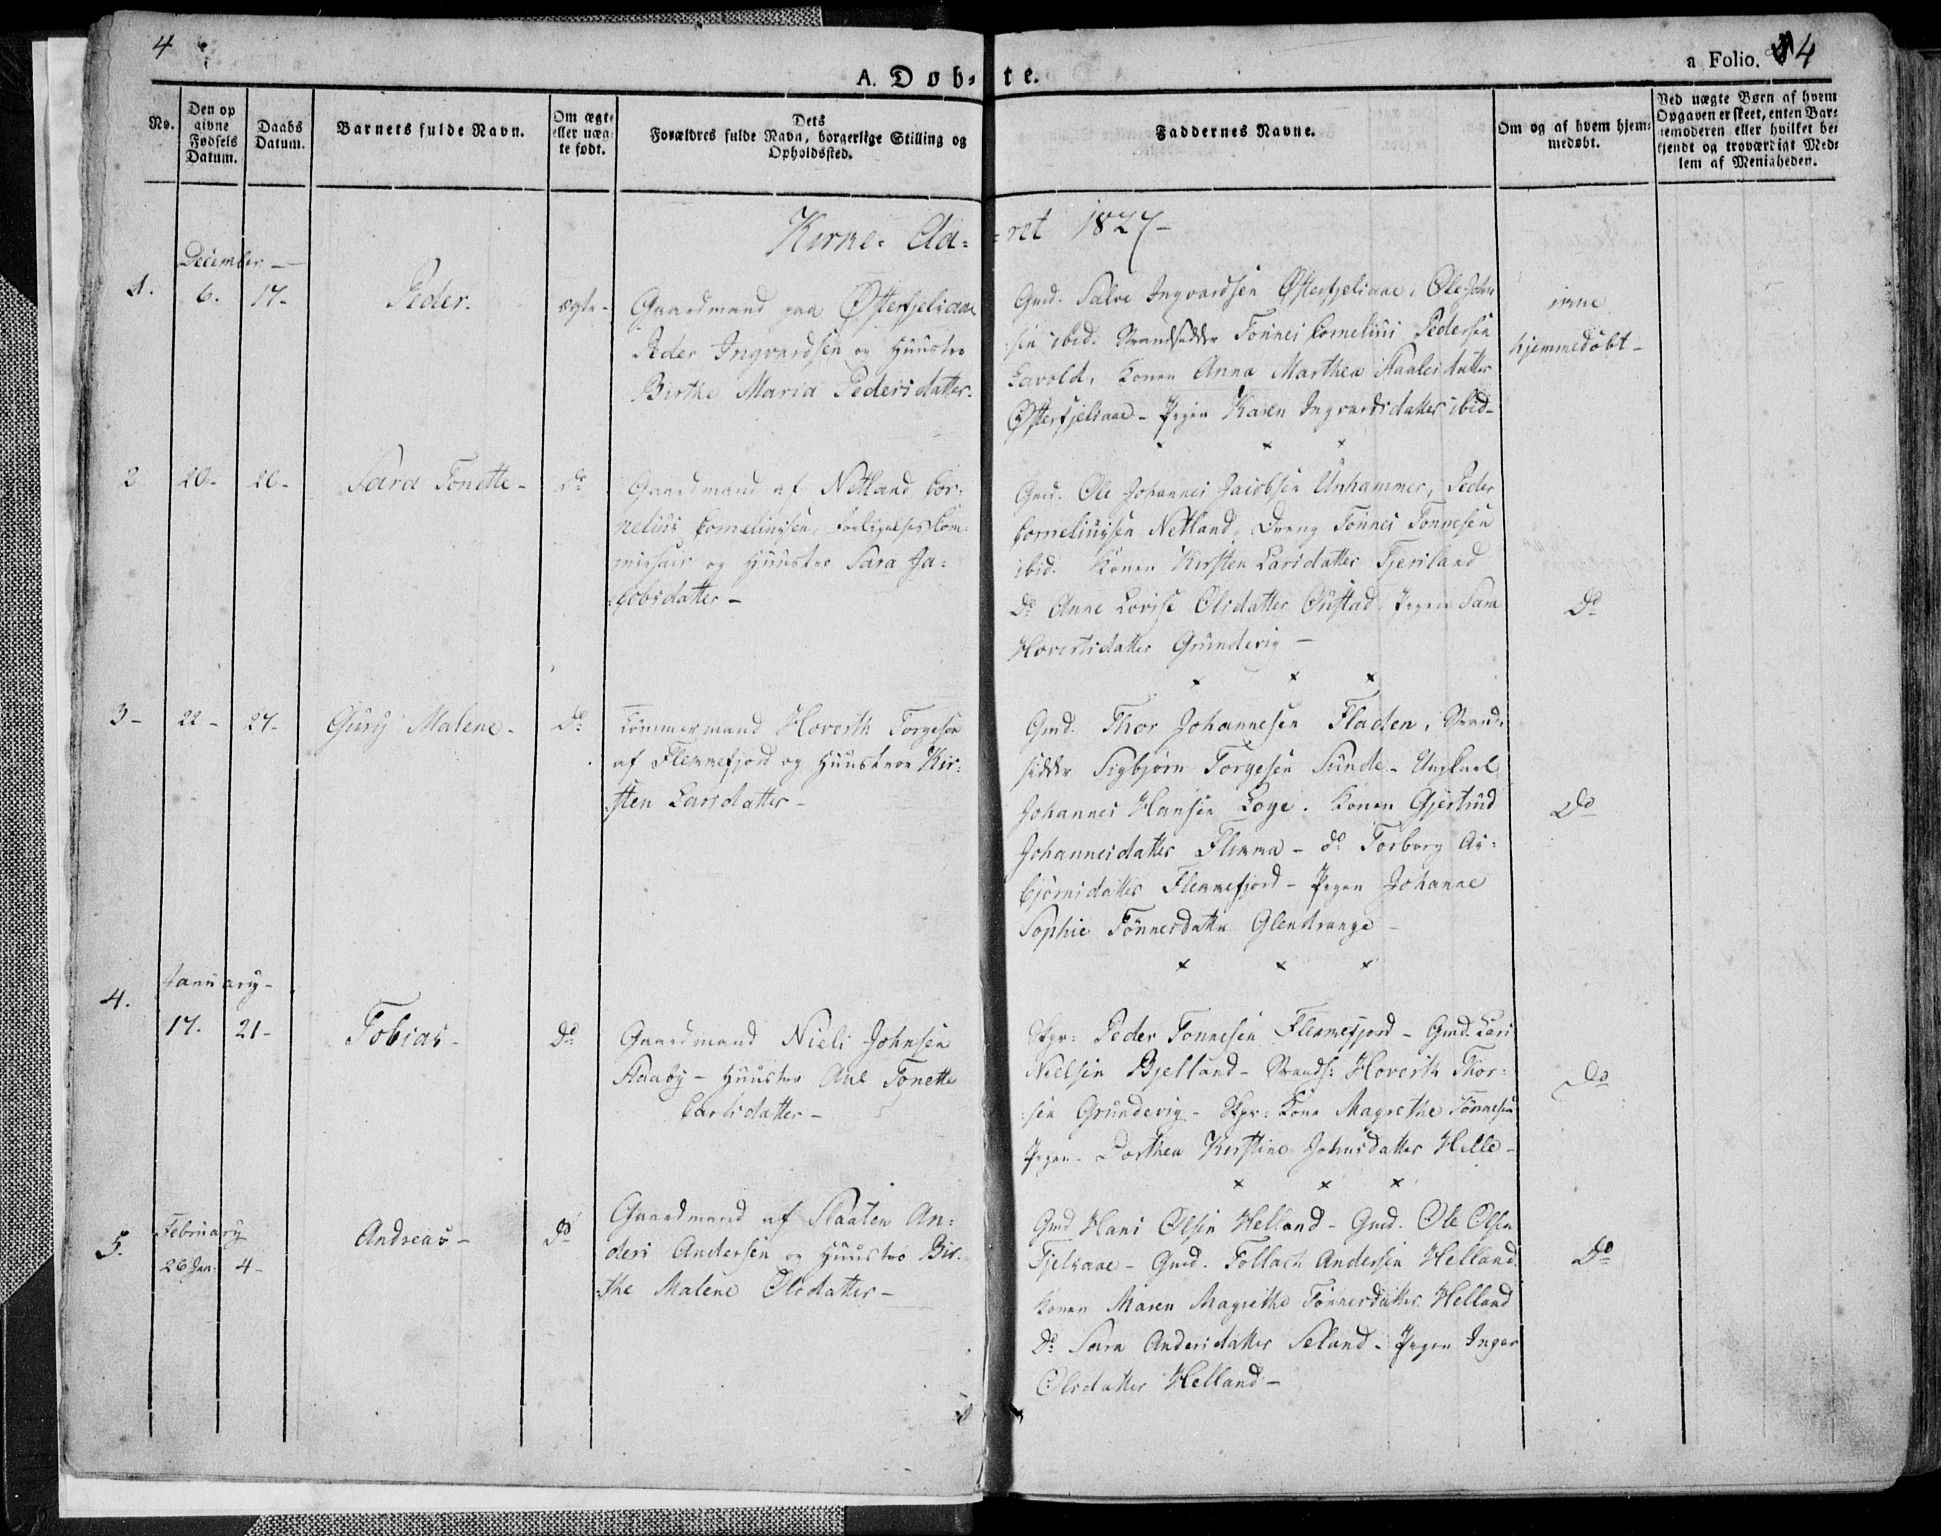 4
A. Døb-te.
a Folio. 4
No.
Den op
givne
Fødsels
Datum.
Daabs
Datum.
Barnets fulde Navn.
Om ægte
eller uæg-
te født.
Dets
Forældres fulde Navn, borgerlige Stilling og
Opholdssted.
Faddernes Navne.
Om og af hvem hjem-
medøbt.
Ved uægte Børn af hvem
Opgaven er skeet, enten Bar-
nemoderen eller hvilket be-
kjendt og troværdigt Med-
lem af Menigheden.
Kirke- Aa- -ret 1827-
December -
1. 6. 17- Peder. ægte-
Gaardmand paa Østerfjeldsaae
Peder Ingvardsen og Huustro
Birthe Maria Pedersdatter.
Gmd. Salve Ingvardsen Østerfjelsaae, Ole John
sen ibid. Strandsidder Tønnes Cornelius Pedersen
Lavold, Konen Anna Marthea Staalesdatter
Østerfjelsaae - Pigen Karen Ingvardsdatter ibid-
hjemmedøbt -
2 20- 26- Sara Tonette - Do
Gaardmand af Netland Cor-
nelius Corneliussen, Forligelses Com-
missair og Huustro Sara Ja-
cobsdatter -
Gmd. Ole Johannes Jacobsen Unhammer, Peder
Corneliussen Netland, Dreng Tønnes Tønnesen
ibid. Konen Kirsten Larsdatter Tjersland
Do Anne Lovise Olsdatter Østad, Pigen Sara
Hovertsdatter Grundevig -
Do
3- 22- 27- Gury Malene - Do
Tømmermand Hoverth Torgesen
af Flekkefjord og Huustroe Kir-
sten Larsdatter -
Gmd. Thor Johannesen Fladen, Strand-
sidder Sigbjørn Torgesen Sunde - Ungkarl
Johannes Hansen Loge. Konen Gjertrud
Johannesdatter Flikka - do Torborg As-
bjørnsdatter Flekkefjord - Pigen Johanne
Sophie Tønnesdatter Glendrange -
Do
January -
4. 17. 21- Tobias - Do
Gaardmand Niels Johnsen
Aaby - Huustro Ane Tonette
Carlsdatter -
Skpr: Peder Tønnesen Flekkefjord - Gmd. Lars
Nielsen Bjelland - Strands: Hoverth Thor-
sen Grundevig - Skpr: Kone Magrethe Tønnesen
Pigen - Dorthea Kirstine Johnsdatter Helle -
Do
February
5. 26 Jan: 4- Andreas - Do
Gaardmand af Slaaten An-
ders Andersen og Huustro Bir-
the Malene Olsdatter -
Gmd Hans Olsen Helland - Gmd. Ole Olsen
Fjelsaae - Gmd. Tollach Andersen Helland.
Konen Maren Magrethe Tønnesdatter Helland
Do Sara Andersdatter Seland - Pigen Inger
Olsdatter Helland -
Do